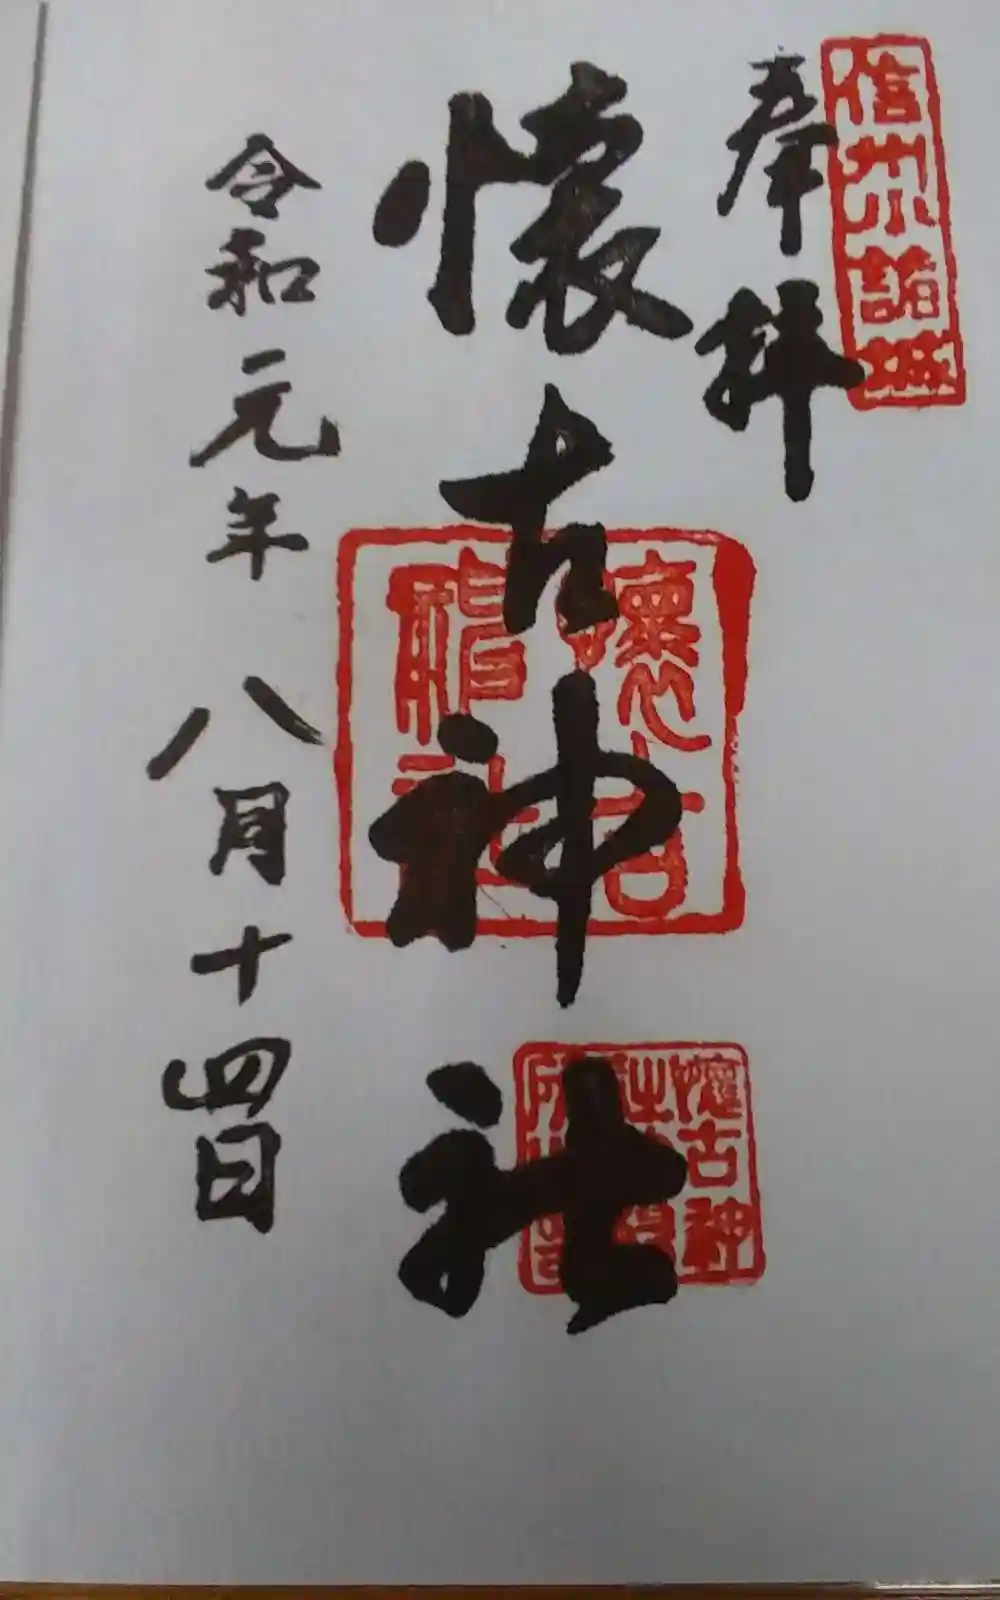 信州小諸城
奉拝
懐古神社
懐古
神社
懐古神
令和元年八月十四日